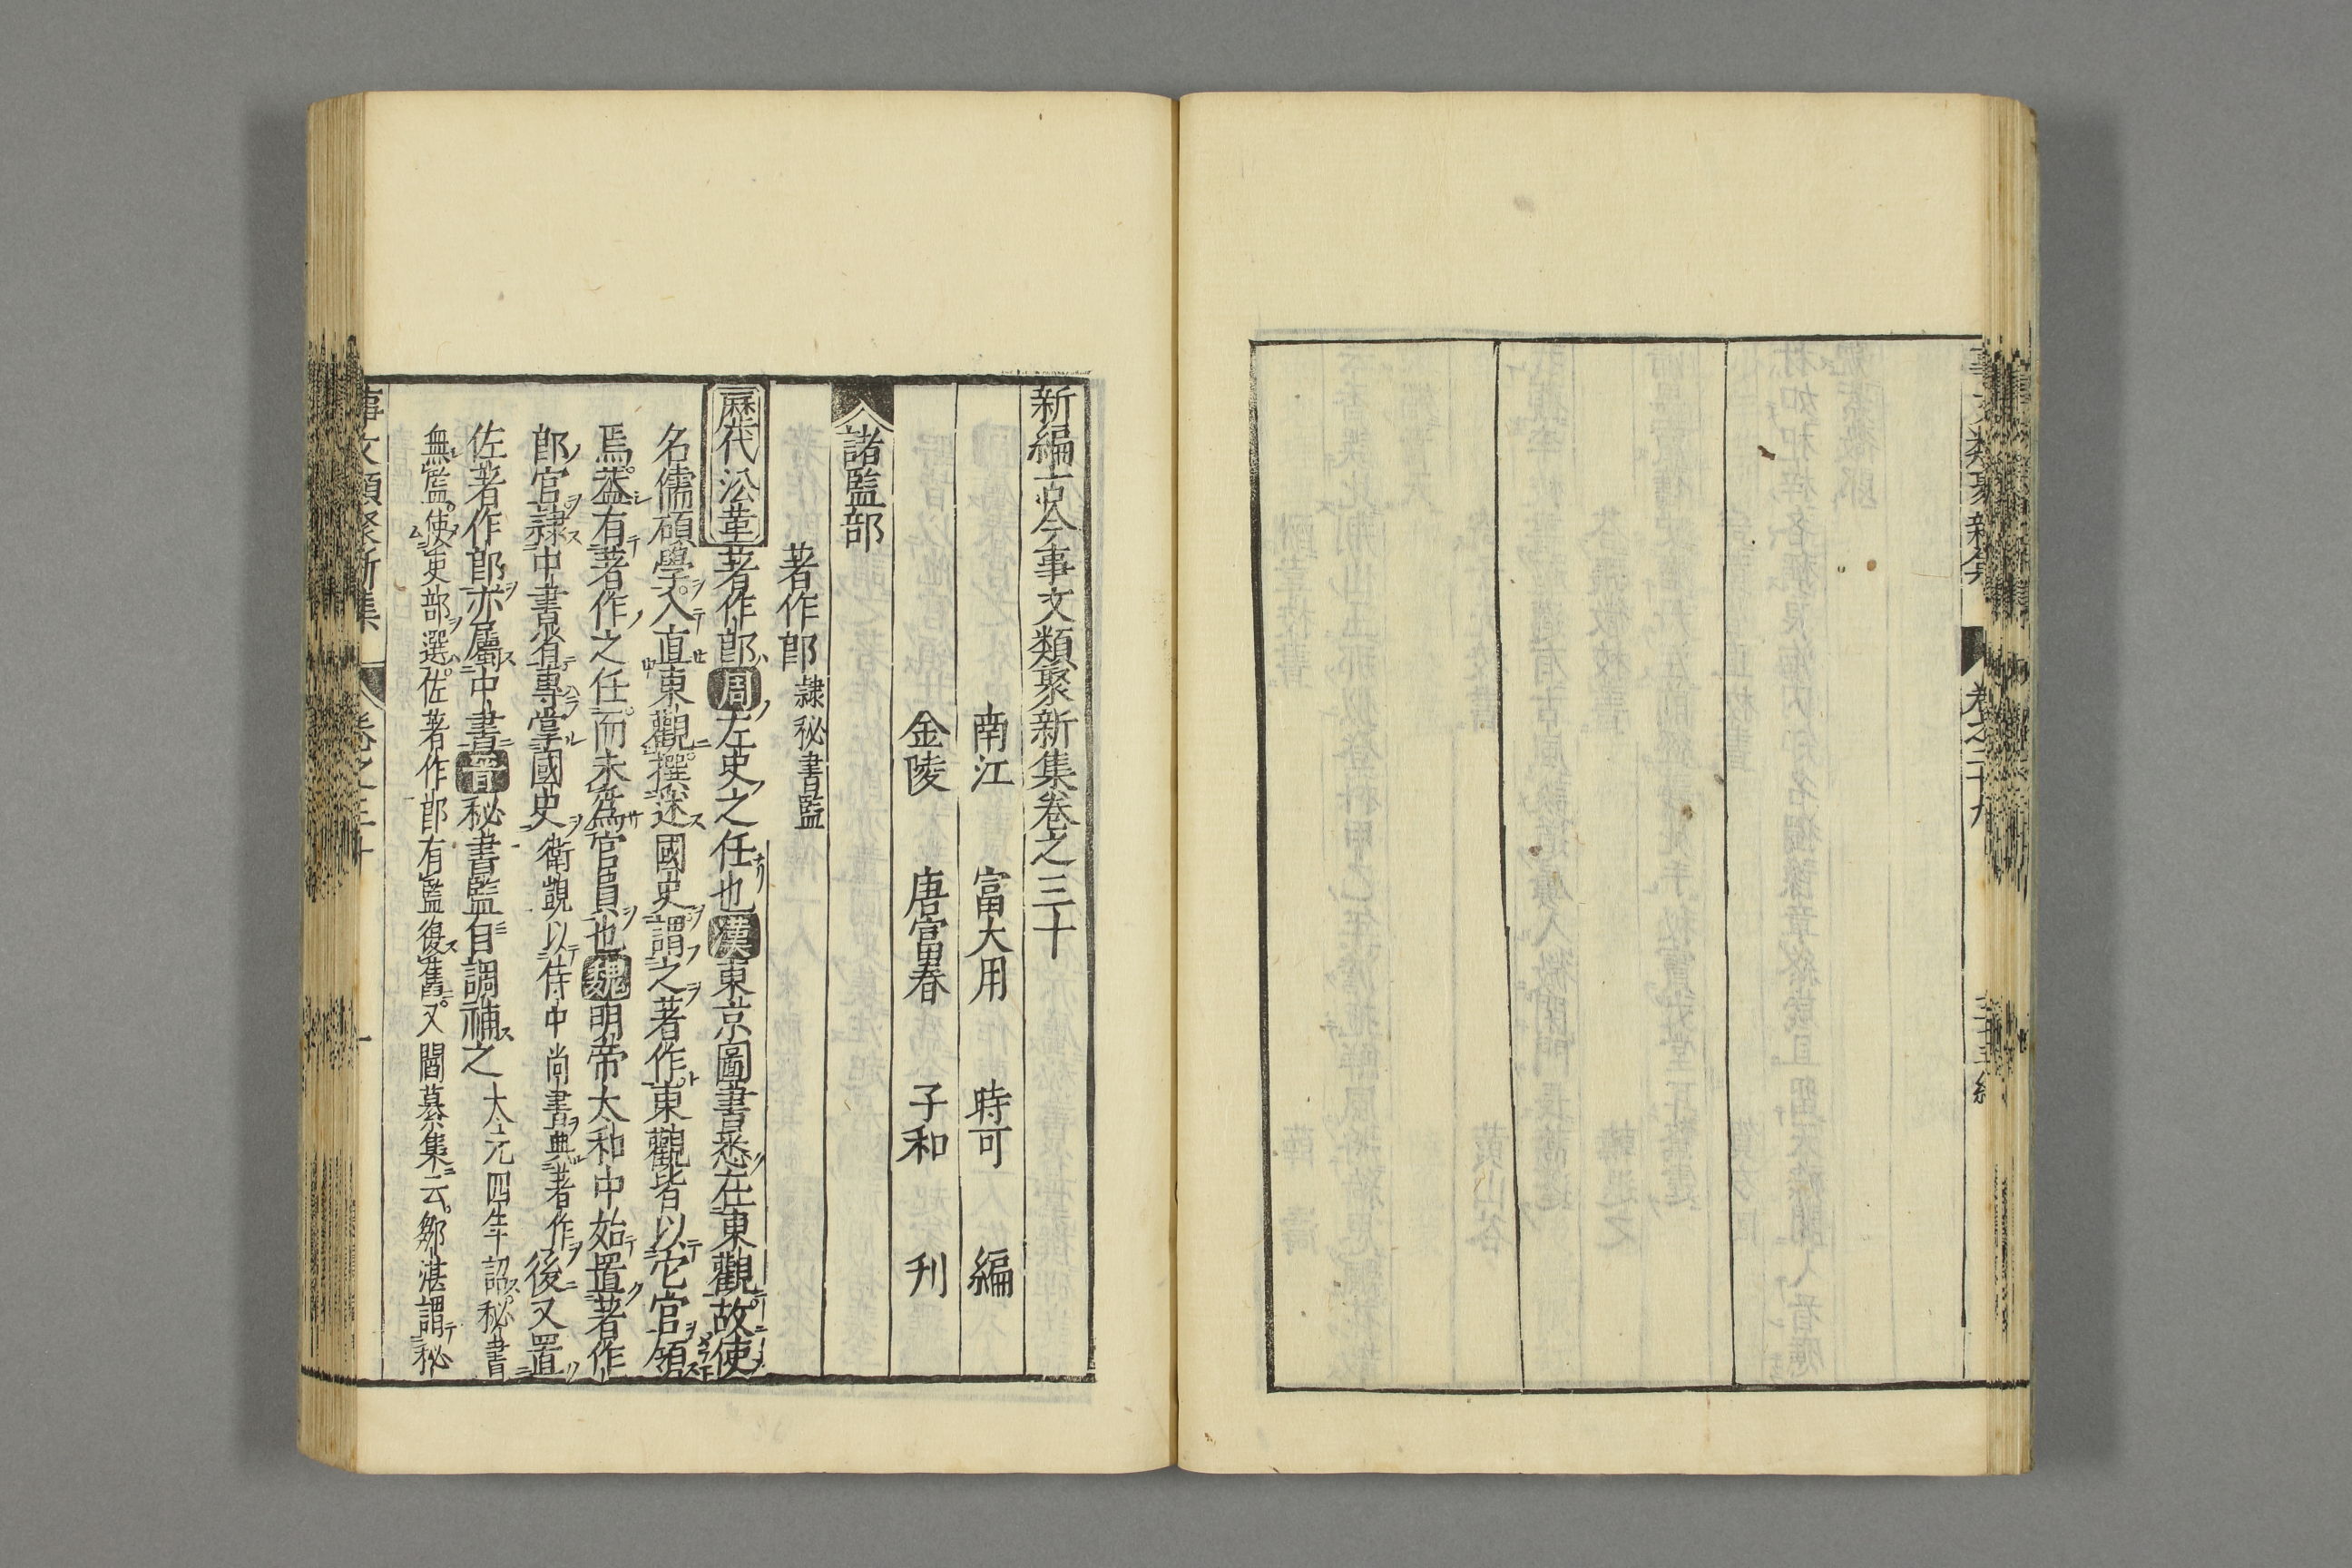 新編古今事文類聚新集卷之三十
南江 富大用 時可 編
金陵 唐富春 子和 刋
諸監部
著作郎 隷秘書監
歷代沿革 著作郎周左史之任也漢東京圖書悉在東觀故使
名儒碩學入直東觀撰述國史謂之著作東觀皆以它官領
焉蓋有著作之任而未爲官員也魏明帝太和中始置著作
郎官隷中書省專掌國史衛覬以侍中尚書典著作後又置
佐著作郎亦屬中書晉秘書監自調補之太元四年詔秘書
無監使吏部選佐著作郎有監復舊又閻纂集云鄒湛謂秘